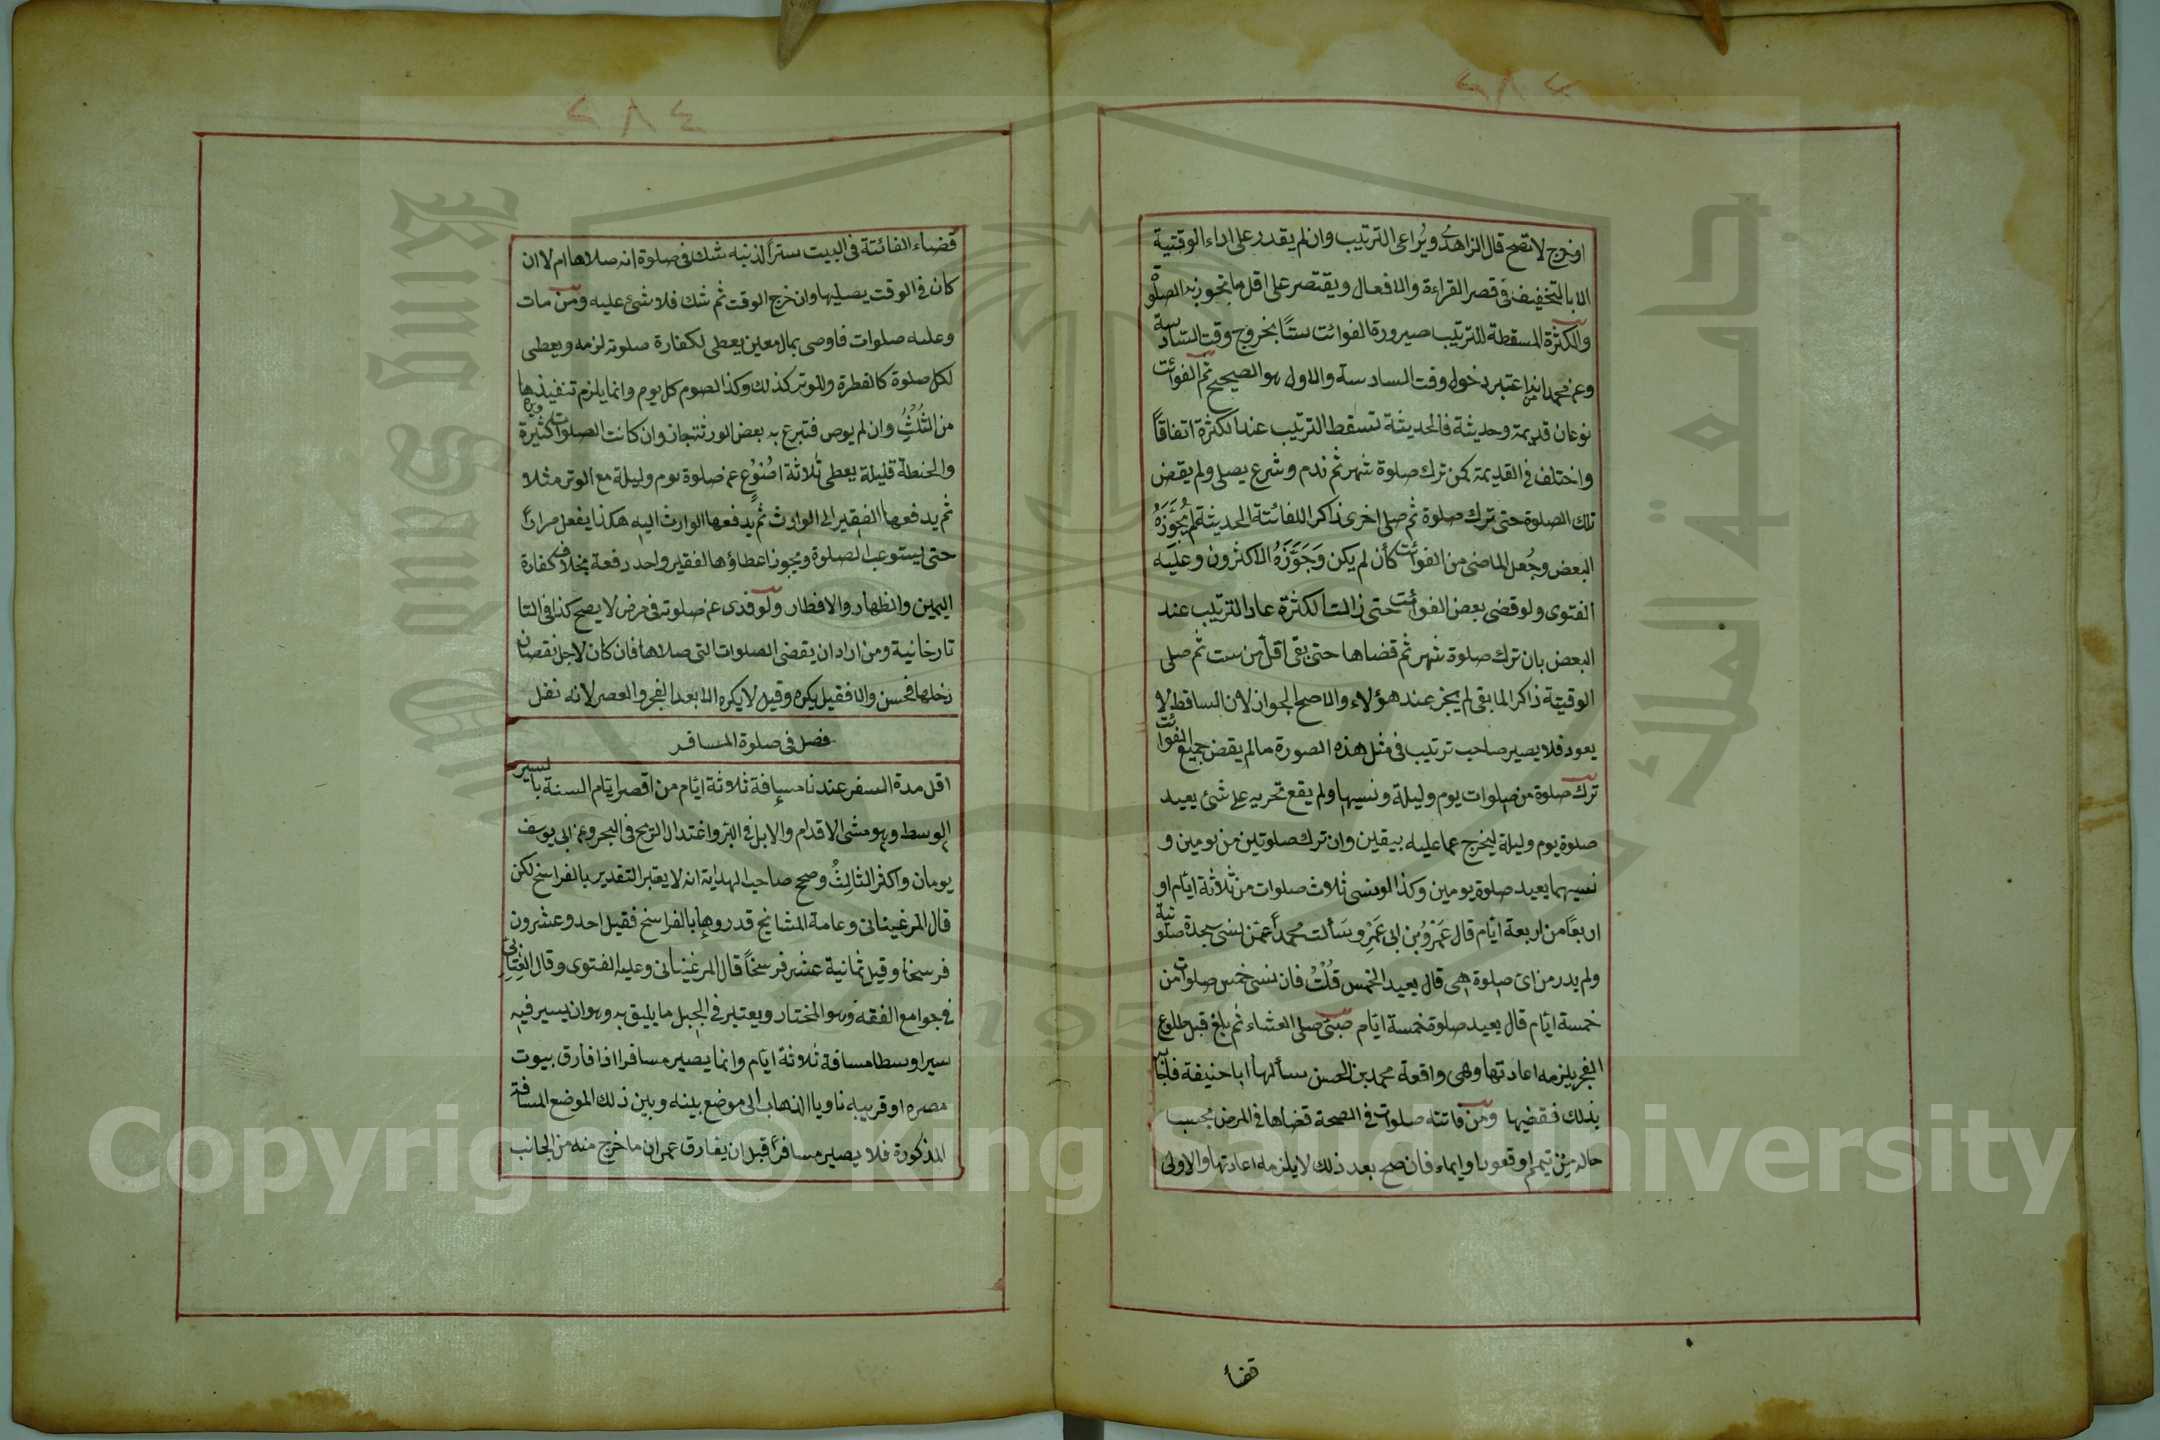 او خرج لا تصح قال الزاهدى ويُراعى الترتيب وان لم يقدر على اداء الوقتية
الا بالتخفيف فى قصر القراءة والافعال ويقتصر على اقل ما تجوز به الصلوة
والكثرة المسقطة للترتيب صيرورة الفوائت ستًا بخروج وقت السادسة
وعن محمد انه اعتبر دخول وقت السادسة والاول هو الصحيح ثم الفوائت
نوعان قديمة وحديثة فالحديثة تسقط الترتيب عند الكثرة اتفاقًا
واختلف فى القديمة كمن ترك صلوة شهر ثم ندم وشرع يصلى ولم يقض
تلك الصلوة حتى ترك صلوة ثم صلى اخرى ذاكرا للفائتة الحديثة لم يُجَوّزهُ
البعض وجُعل الماضى من الفوائت كأن لم يكن وَجَوَّزَهُ الاكثرون وعليه
الفتوى ولو قضى بعض الفوائت حتى زالت الكثرة عاد الترتيب عند
البعض بان ترك صلوة شهر ثم قضاها حتى بقى اقل من ست ثم صلى
الوقتية ذاكرا لما بقى لم يجز عند هؤلاء والاصح الجواز لان الساقط لا
يعود فلا يصير صاحب ترتيب فى مثل هذه الصورة ما لم يقض جميع الفوائت
ترك صلوة من صلوات يوم وليلة ونسيها ولم يقع تحريه على شئ يعيد
صلوة يوم وليلة ليخرج عما عليه بيقين وان ترك صلوتين من يومين و
نسيهما يعيد صلوة يومين وكذا لو نسى ثلاث صلوات من ثلاثة ايّام او
اربعًا من اربعة ايّام قال عَمْرُوبن ابى عَمْرٍو سَألت محمداً عمّن نسى سجدة صلوتية
ولم يدر من اىّ صلوة هى قال يعيد الخمس قُلْتُ فان نسى خمس صلوات من
خمسة ايّام قال يعيد صلوة خمسة ايّام صبىّ صلى العشاء ثم بلغ قبل طلوع
الفجر يلزمه اعادتها وهى واقعة محمد بن الحسن سألها ابا حنيفة فاجاب
بذلك فقضيها ومن فاتته صلوات فى الصحة قضاها فى المرض بحسب
حاله من تيمم او قعود او ايماء فان صح بعد ذلك لا يلزمه اعادتها والاولى
قضأ
قضاء الفائتة فى البيت ستراً لذنبه شك فى صلوة انه صلاها ام لا ان
كان فى الوقت يصليها وان خرج الوقت ثم شك فلا شئ عليه ومن مات
وعليه صلوات فاوصى بمال معين يعطى لكفارة صلوته لزمه ويعطى
لكل صلوة كالفطرة وللوتر كذلك وكذا الصوم كل يوم وانما يلزم تنفيذها
من الثُلُثِ وان لم يوص فتبرع به بعض الورثة جاز وان كانت الصلوات كثيرة
والحنطة قليلة يعطى ثلاثة اصْوُعٍ عن صلوة يوم وليلة مع الوتر مثلا
ثم يدفعها الفقير الى الوارث ثم يدفعها الوارث اليه هكذا يفعل مرارًا
حتى يستوعب الصلوة ويجوز اعطاؤها لفقير واحد دفعة بخلاف كفارة
اليمين والظهار والافطار ولو فدى عن صلوته فى مرض لا يصح كذا فى التا
تارخانية ومن اراد ان يقضى الصلوات التى صلاها فان كان لاجل نقصان
دخلها فحسن والا فقيل يكره وقيل لا يكره الا بعد الفجر والعصر لانه نفل
فصل فى صلوة المسافر
اقل مدة السفر عندنا مسافة ثلاثة ايّام من اقصر ايّام السنة بالسير
الوسط وهو مشى الاقدام والابل فى البرّ واعتدال الريح فى البحر وعن ابى يوسف
يومان واكثر الثالثُ وصحح صاحب الهداية انه لا يعتبر التقدير بالفراسخ لكن
قال المرغينانى وعامة المشايخ قدروها بالفراسخ فقيل احد وعشرون
فرسخا وقيل ثمانية عشر فرسخًا قال المرغينانى وعليه الفتوى وقال العتابى
فى جوامع الفقه وهو المختار ويعتبر فى الجبل ما يليق به وهو ان يسير فيه
سيرا وسطا مسافة ثلاثة ايّام وانما يصير مسافرا اذا فارق بيوت
مصره او قريبه ناويا الذهاب الى موضع بينه وبين ذلك الموضع المسافة
المذكورة فلا يصير مسافرًا قبل ان يفارق عمران ما خرج منه من الجانب
Copyright © King Saud University